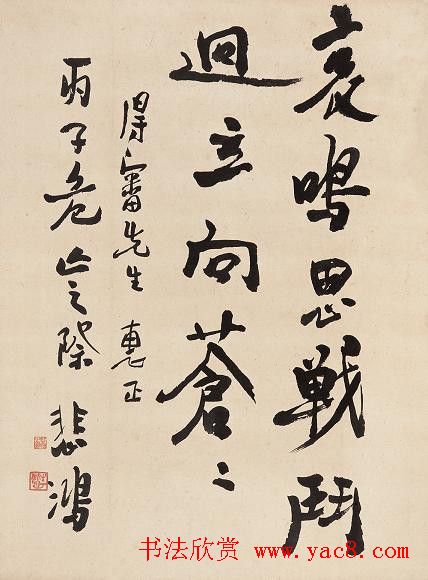 哀鳴思戰鬥
逈立向蒼〻
得審先生 惠正
丙子危亡之際 悲鴻
书法欣赏 www.yac8.com